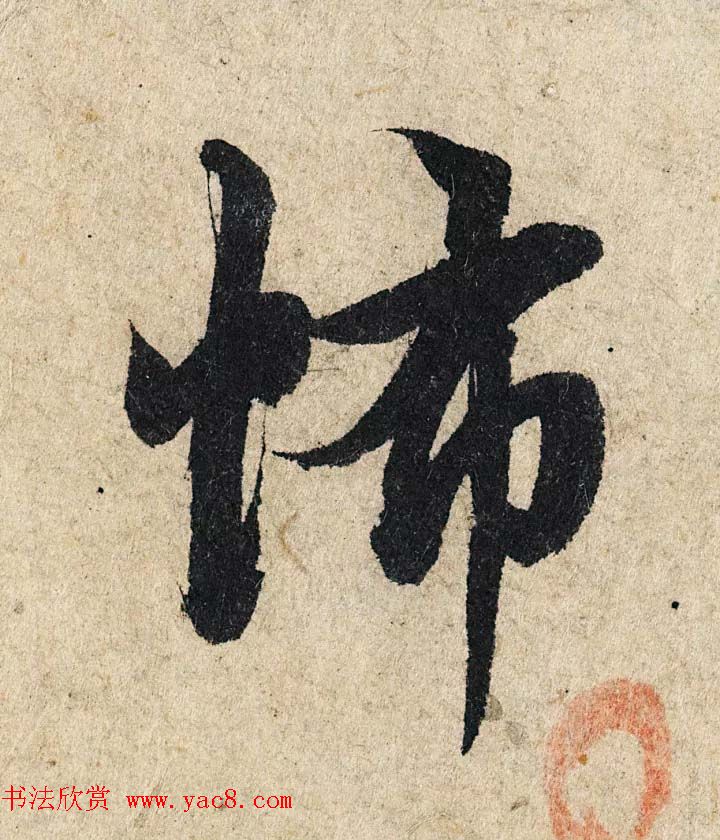 怖
书法欣赏 www.yac8.com